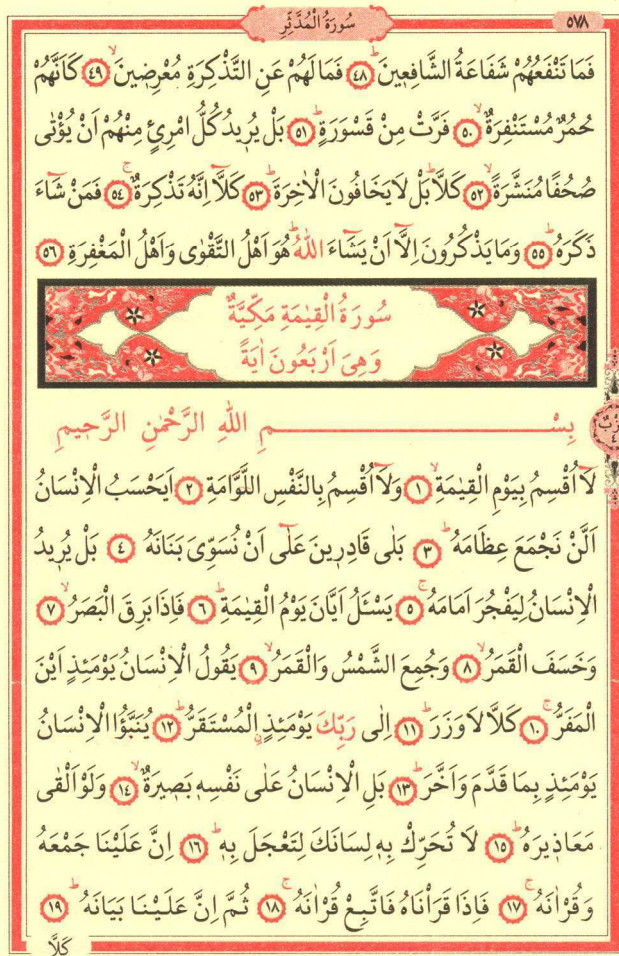 سُورَةُ الْمُدَّثِّرِ
٥٧٨
فَمَا تَنْفَعُهُمْ شَفَاعَةُ الشَّافِعٖينَۜ ٤٨ فَمَا لَهُمْ عَنِ التَّذْكِرَةِ مُعْرِضٖينَۙ ٤٩ كَاَنَّهُمْ
حُمُرٌ مُسْتَنْفِرَةٌۙ ٥٠ فَرَّتْ مِنْ قَسْوَرَةٍۜ ٥١ بَلْ يُرٖيدُ كُلُّ امْرِئٍ مِنْهُمْ اَنْ يُؤْتٰى
صُحُفًا مُنَشَّرَةًۙ ٥٢ كَلَّاۜ بَلْ لَا يَخَافُونَ الْاٰخِرَةَۜ ٥٣ كَلَّٓا اِنَّهُ تَذْكِرَةٌۚ ٥٤ فَمَنْ شَٓاءَ
ذَكَرَهُۜ ٥٥ وَمَا يَذْكُرُونَ اِلَّٓا اَنْ يَشَٓاءَ اللّٰهُۜ هُوَ اَهْلُ التَّقْوٰى وَاَهْلُ الْمَغْفِرَةِ ٥٦
سُورَةُ الْقِيٰمَةِ مَكِّيَّةٌ
وَهِيَ اَرْبَعُونَ اٰيَةً
بِسْمِ اللّٰهِ الرَّحْمٰنِ الرَّحٖيمِ
لَٓا اُقْسِمُ بِيَوْمِ الْقِيٰمَةِۙ ١ وَلَٓا اُقْسِمُ بِالنَّفْسِ اللَّوَّامَةِ ٢ اَيَحْسَبُ الْاِنْسَانُ
اَلَّنْ نَجْمَعَ عِظَامَهُۜ ٣ بَلٰى قَادِرٖينَ عَلٰٓى اَنْ نُسَوِّيَ بَنَانَهُ ٤ بَلْ يُرٖيدُ
الْاِنْسَانُ لِيَفْجُرَ اَمَامَهُۚ ٥ يَسْـَٔلُ اَيَّانَ يَوْمُ الْقِيٰمَةِۜ ٦ فَاِذَا بَرِقَ الْبَصَرُۙ ٧
وَخَسَفَ الْقَمَرُۙ ٨ وَجُمِعَ الشَّمْسُ وَالْقَمَرُۙ ٩ يَقُولُ الْاِنْسَانُ يَوْمَئِذٍ اَيْنَ
الْمَفَرُّۚ ١٠ كَلَّا لَا وَزَرَۜ ١١ اِلٰى رَبِّكَ يَوْمَئِذٍۨ الْمُسْتَقَرُّۜ ١٢ يُنَبَّؤُا الْاِنْسَانُ
يَوْمَئِذٍ بِمَا قَدَّمَ وَاَخَّرَۜ ١٣ بَلِ الْاِنْسَانُ عَلٰى نَفْسِهٖ بَصٖيرَةٌۙ ١٤ وَلَوْ اَلْقٰى
مَعَاذٖيرَهُۜ ١٥ لَا تُحَرِّكْ بِهٖ لِسَانَكَ لِتَعْجَلَ بِهٖۜ ١٦ اِنَّ عَلَيْنَا جَمْعَهُ
وَقُرْاٰنَهُۚ ١٧ فَاِذَا قَرَاْنَاهُ فَاتَّبِعْ قُرْاٰنَهُۚ ١٨ ثُمَّ اِنَّ عَلَيْنَا بَيَانَهُۜ ١٩
كَلَّا